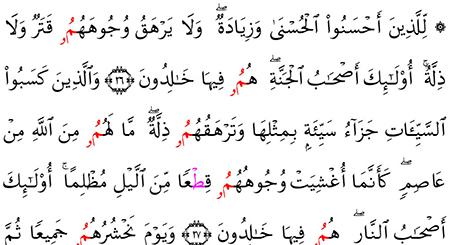 ۞ لِّلَّذِينَ أَحْسَنُوا۟ ٱلْحُسْنَىٰ وَزِيَادَةٌۖ وَلَا يَرْهَقُ وُجُوهَهُمُۥ قَتَرٌ وَلَا
ذِلَّةٌۚ أُو۟لَٰٓئِكَ أَصْحَٰبُ ٱلْجَنَّةِۖ هُمُۥ فِيهَا خَٰلِدُونَ ﴿٢٦﴾ وَٱلَّذِينَ كَسَبُوا۟
ٱلسَّيِّـَٔاتِ جَزَآءُ سَيِّئَةِۭ بِمِثْلِهَا وَتَرْهَقُهُمُۥ ذِلَّةٌۖ مَّا لَهُمُۥ مِنَ ٱللَّهِ مِنْ
عَاصِمٍۖ كَأَنَّمَآ أُغْشِيَتْ وُجُوهُهُمُۥ قِطْعًا مِّنَ ٱلَّيْلِ مُظْلِمًاۚ أُو۟لَٰٓئِكَ
أَصْحَٰبُ ٱلنَّارِۖ هُمُۥ فِيهَا خَٰلِدُونَ ﴿٢٧﴾ وَيَوْمَ نَحْشُرُهُمُۥ جَمِيعًا ثُمَّ